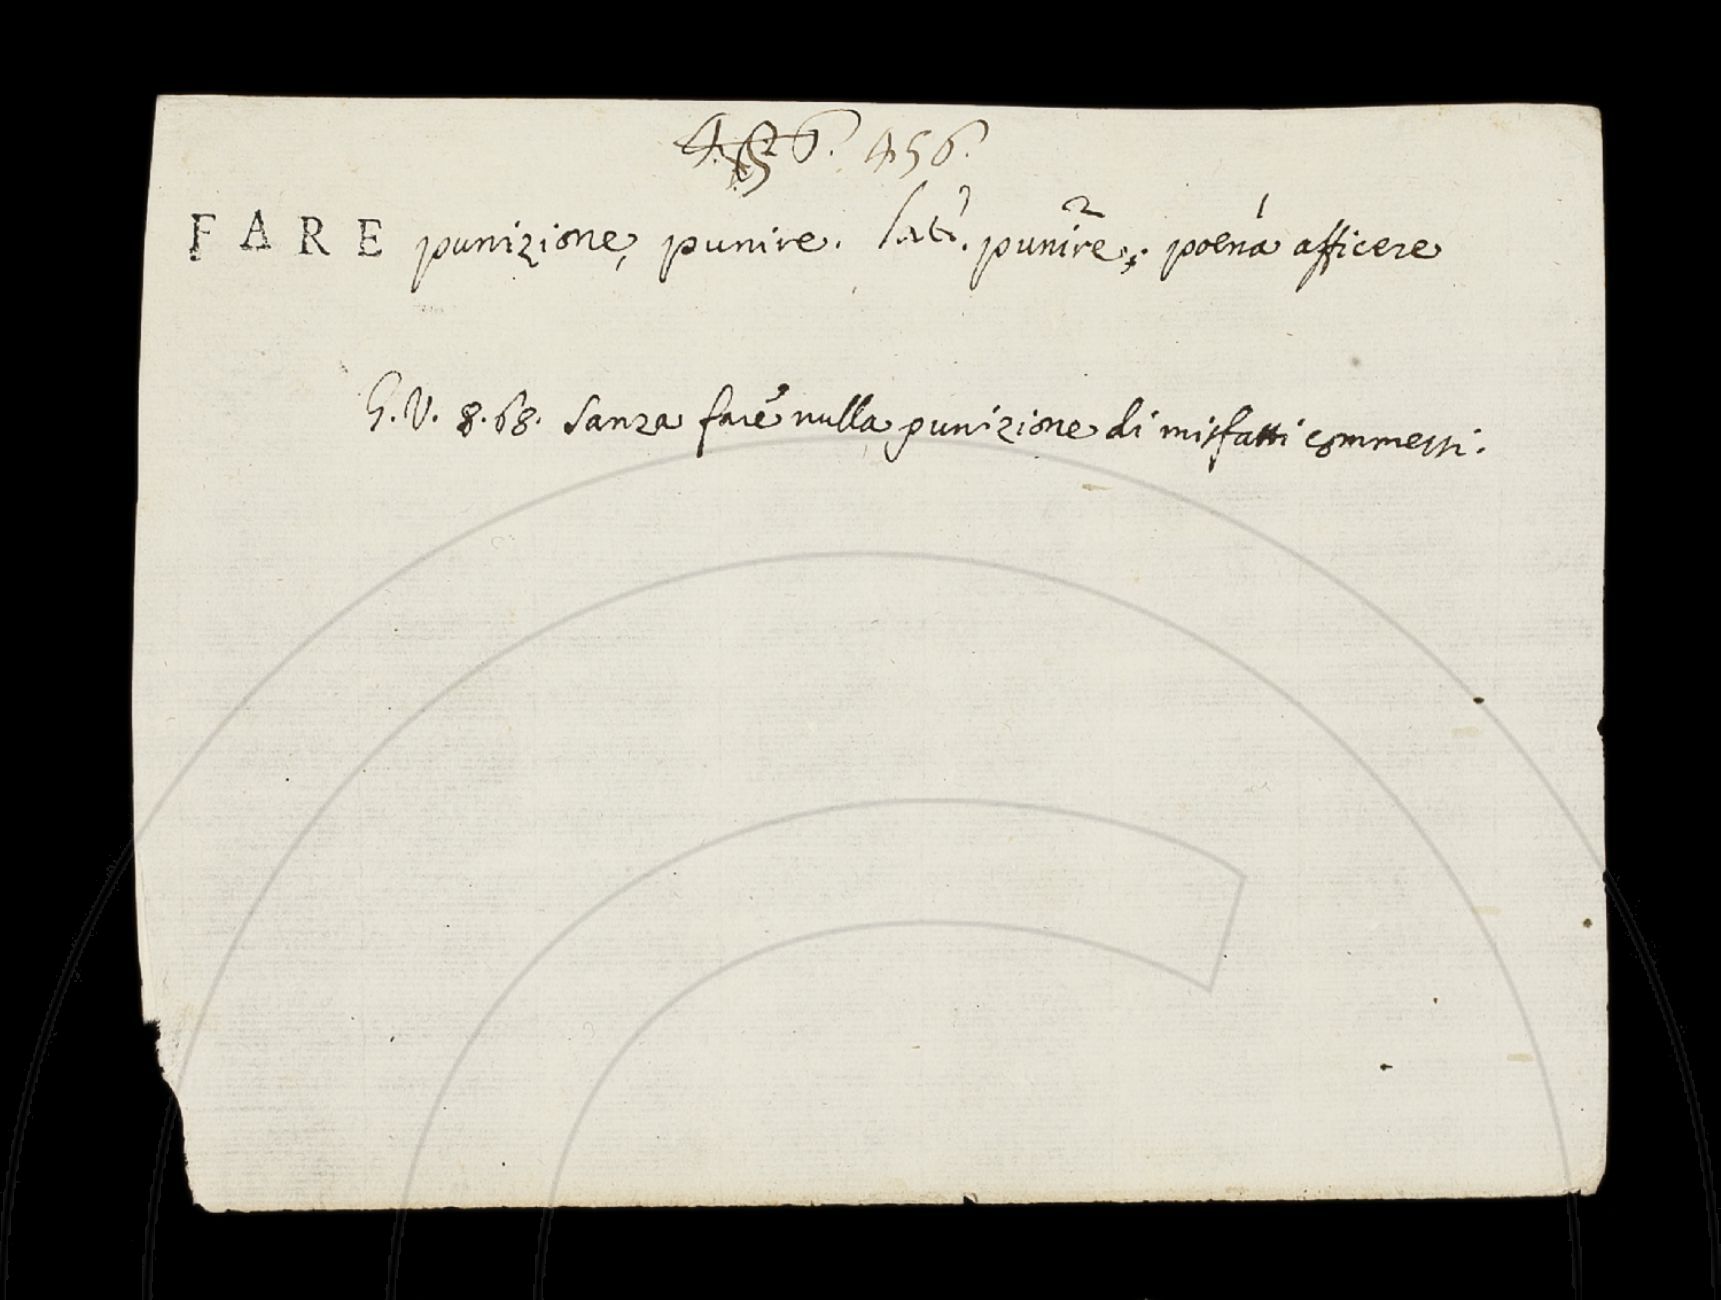 456.
FARE punizione, punire. lat. punire 2. poena 1 afficere
G. V. 8. 68. Sanza fare nulla punizione di misfatti commessi.